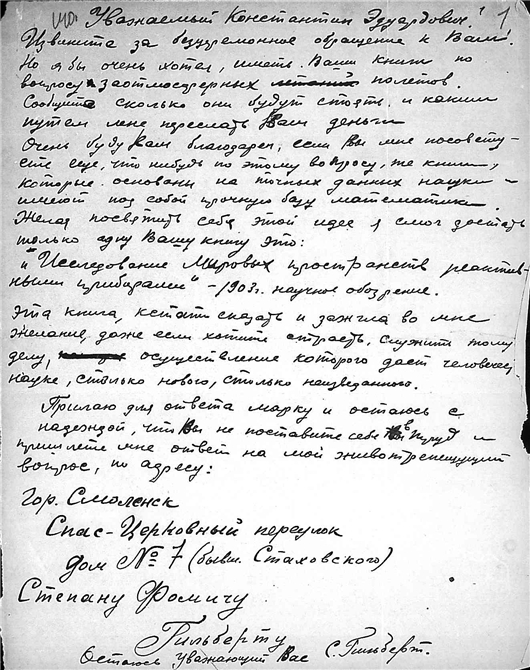 1
Уважаемый Константин Эдуардович!
Извините за безцеремонное обращение к Вам.
Но я бы очень хотел, иметь Ваши книги по
вопросу заотмосферных полетов.
Сообщите сколько они будут стоять и каким
путем мне переслать Вам деньги
Очень буду Вам благодарен, если Вы мне посовету-
ете еще, что нибудь по этому вопросу, те книги,
которые основаны на точных данных науки и
имеют под собой прочную базу математики.
Желая посвятить себя этой идее я смог достать
только одну Вашу книгу это:
"Исследование Мировых пространств реактив-
ными приборами" - 1903г. научное обозрение.
Эта книга, кстати сказать и зажгла во мне
желание, даже если хотите страсть, служить тому
делу, осуществление которого даст человечес.
науке, столько нового, столько неизведанного.
Прилаю для ответа марку и остаюсь с
надеждой, что Вы не поставите себе в труд и
пришлете мне ответ на мой животрепещущий
вопрос, по адресу:
Гор. Смоленск
Спас-Церковный переулок
дом № 7 (бывш. Стаховского)
Степану Фомичу
Гильберту
Остаюсь уважающий Вас С. Гильберт.